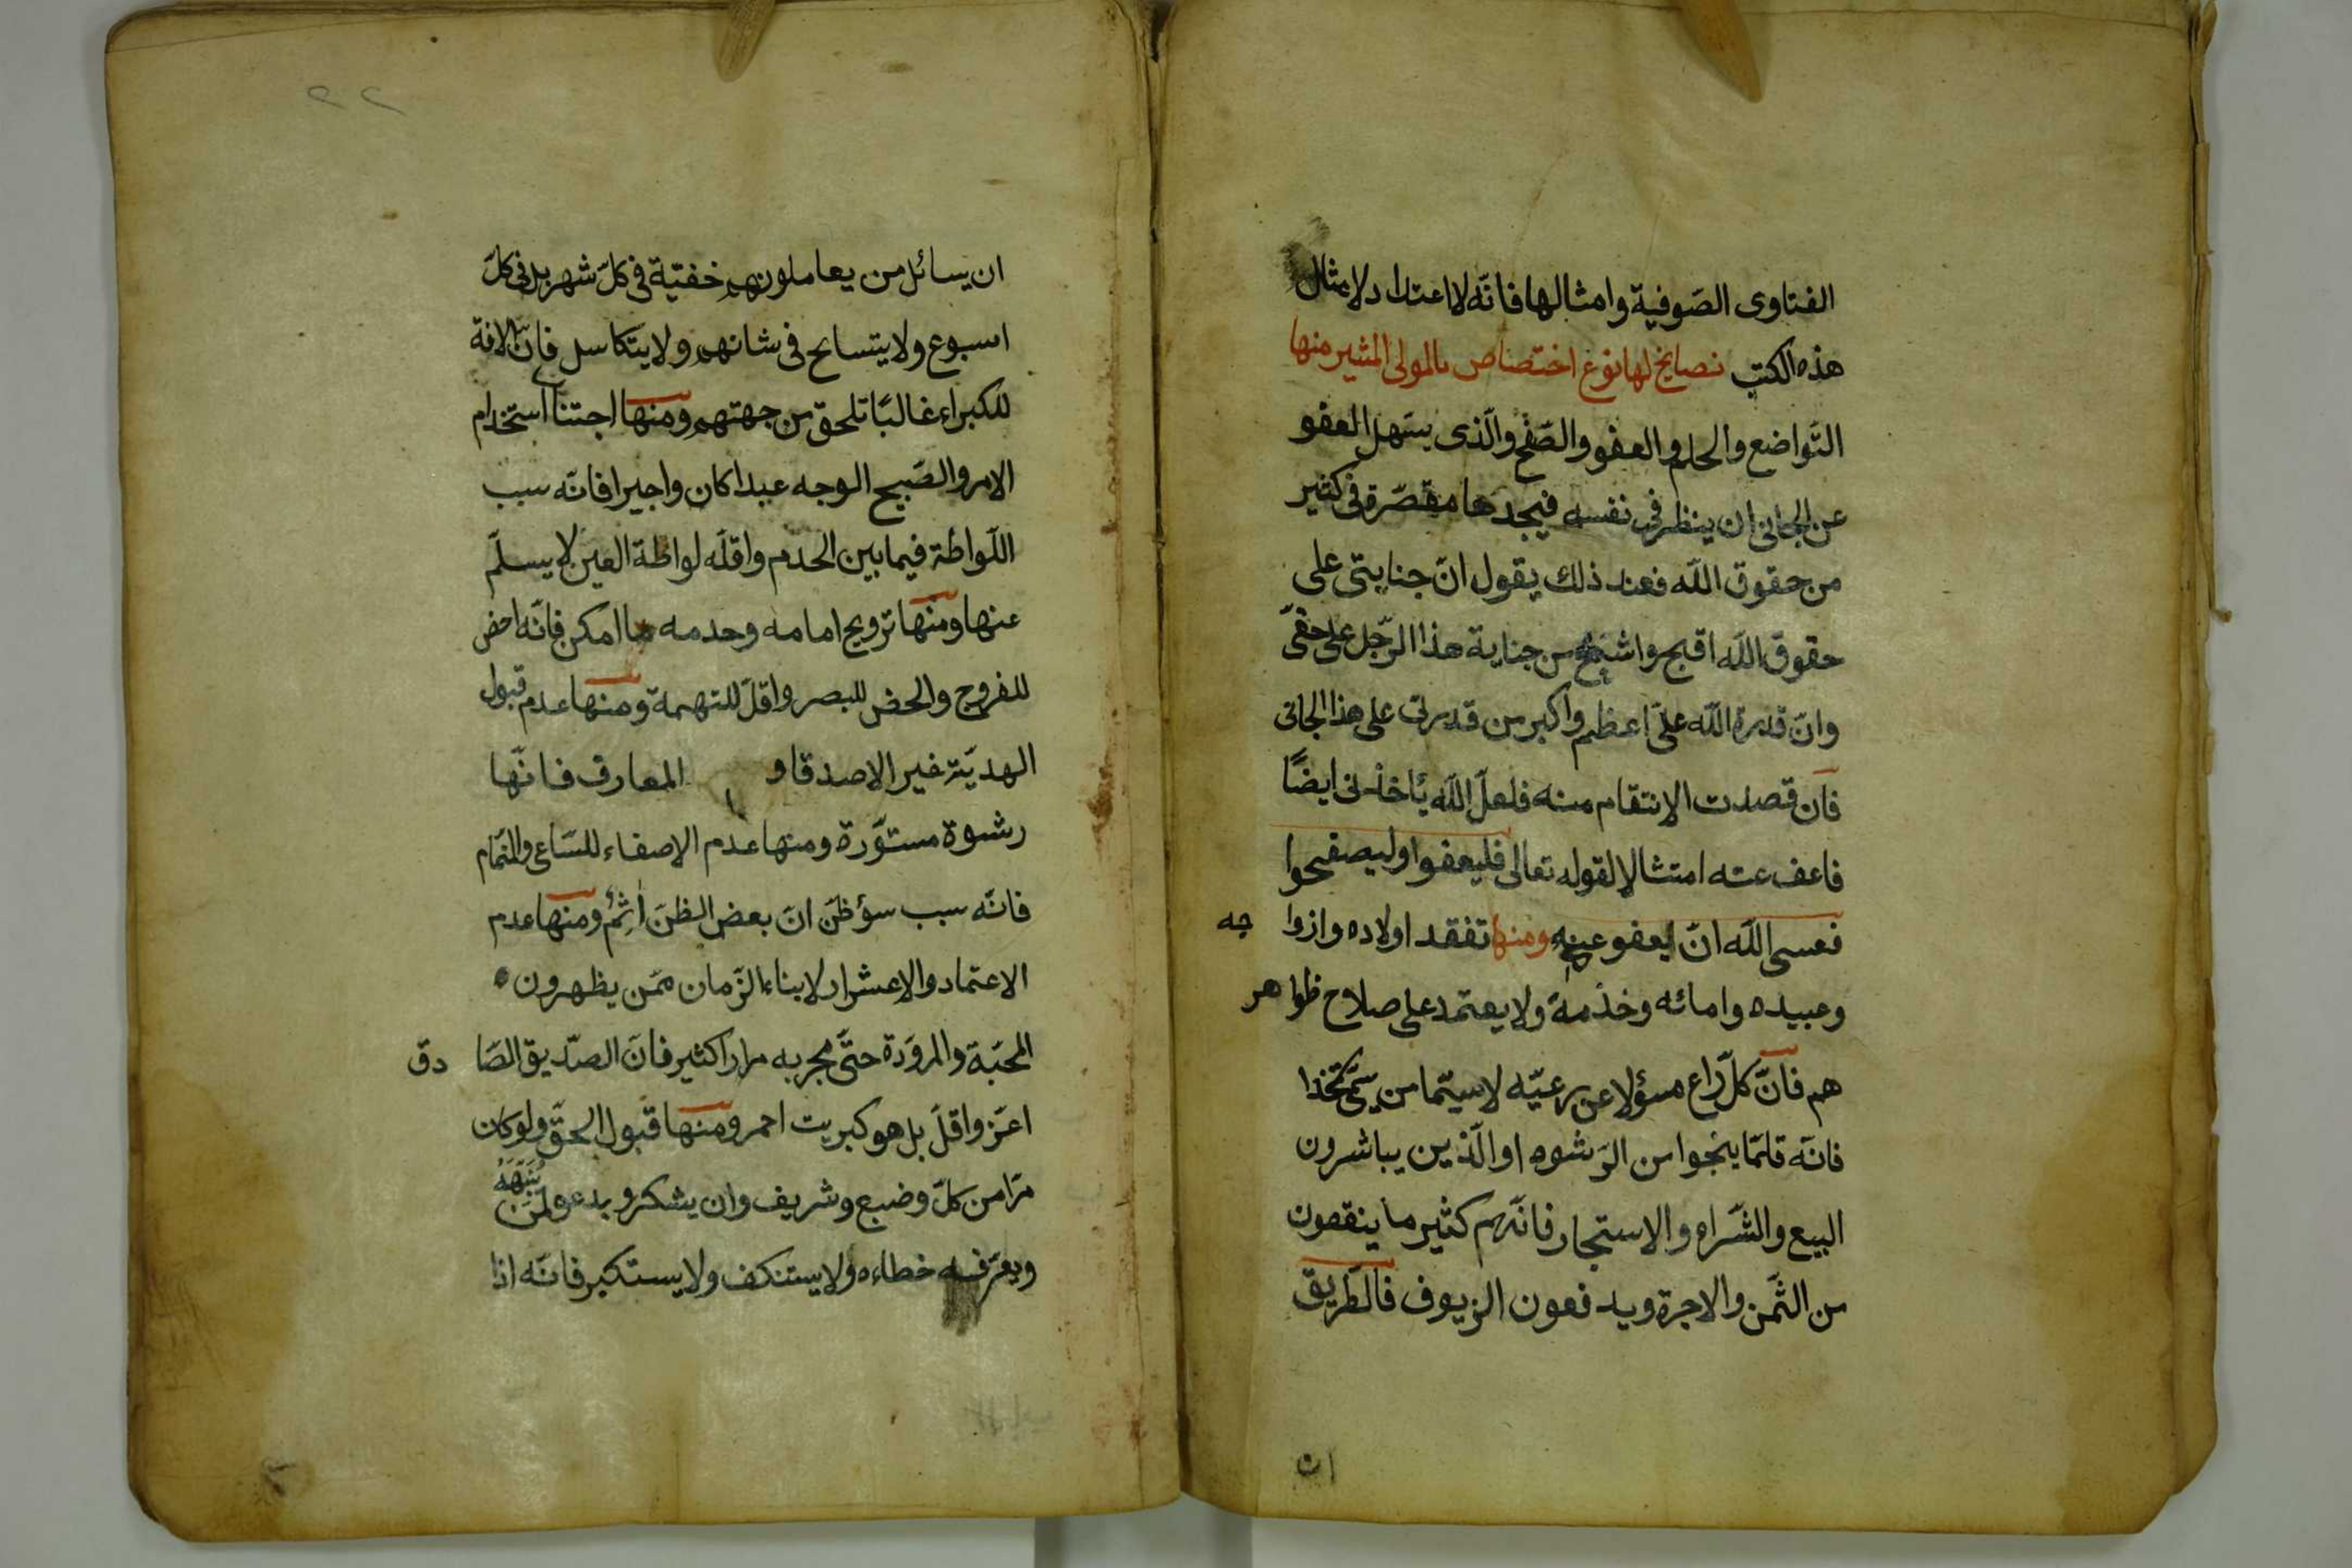 الفتاوى الصّوفية وامثالها فانّه لا اعتداد لامثال
هذه الكتب نصايح لها نوع اختصاص بالمولى المشير منها
التّواضع والحلم والعفو والصّفح والّذى يسهل العفو
عن الجانى ان ينظر فى نفسه فيجدها مقصّرة فى كثير
من حقوق اللّه فعند ذلك يقول انّ جنايتى على
حقوق اللّه اقبح واشنع من جناية هذا الرّجل على حقّى
وانّ قدرة اللّه علىّ اعظم واكبر من قدرتى على هذا الجانى
فان قصدت الانتقام منه فلعلّ اللّه يأخذنى ايضًا
فاعف عنه امتثالا لقوله تعالى فليعفوا وليصفحوا
فعسى اللّه انّ يعفو عنه ومنها تفقد اولاده وازوا جه
وعبيده وامائه وخدمة ولا يعتمد على صلاح ظوا هر
هم فانّ كلّ راع مسؤلا عن رعيّه لا سيّما من يتّخذا
فانّه قلمّا ينجوا من الرّشوه او الّذين يباشرون
البيع والشّراء والاستجار فانّهم كثير ما ينقصون
من الثّمن والاجرة ويدفعون الزيوف فالطّريق
ان
٢٢
ان يسائل من يعاملونهم خفتيّة فى كلّ شهر بل فى كلّ
اسبوع ولا يتسامح فى شانهم ولا يتكاسل فانّ الافة
للكبراء غالبًا تلحق من جهتهم ومنها اجتناب استخدام
الامر والصّبيح الوجه عبدا كان واجيرا فانّه سبب
اللّواطة فيما بين الخدم واقلّه لواطة العين لا يسلّم
عنها ومنها تزويج امامه وخدمه ما امكن فانّه احض
للفروج والحض للبصر واقلّ للتهمة ومنها عدم قبول
الهديّة غير الاصدقا و المعارف فانّها
رشوة مستوّرة ومنها عدم الاصغاء للسّاعى والنّمام
فانّه سبب سؤ ظنّ انّ بعض الظنّ اثمٌ ومنها عدم
الاعتماد والاعشرار لابناء الزّمان ممّن يظهرون
المحبّة والمروّدة حتّى يجربه مرارا كثير فانّ الصّديق الصّا دق
اعزّ واقلّ بل هو كبريت احمر ومنها قبول الحقّ ولو كان
مرّا من كلّ وضيع وشريف وان يشكر ويدعو لمن يُنَبّهَهُ
ويعرّفه خطاءه ولا يستنكف ولا يستكبر فانّه اذا